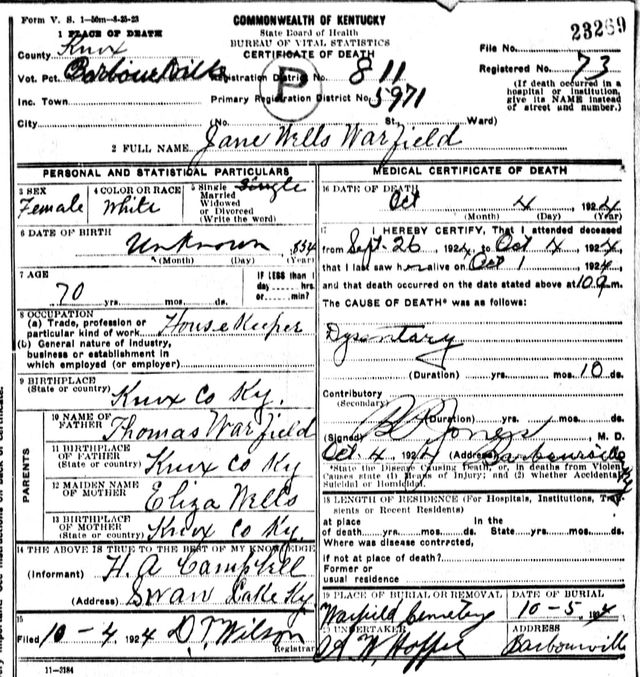 Form V. S. 1-50m-8-25-23
COMMONWEALTH OF KENTUCKY
State Board of Health
BUREAU OF VITAL STATISTICS
CERTIFICATE OF DEATH
23269
1 PLACE OF DEATH
County Knox
File No.
Vot. Pct. Barbourville Registration District No. 811
Registered No. 73
P
Inc. Town Primary Registration District No. 5971
(If death occurred in a hospital or institution, give its NAME instead of street and number.)
City (No. St. Ward)
2 FULL NAME Jane Wells Warfield
PERSONAL AND STATISTICAL PARTICULARS
3 SEX Female
4 COLOR OR RACE White
5 Single Married Widowed or Divorced (Write the word) Single
6 DATE OF BIRTH Unknown 1854
(Month) (Day) (Year)
7 AGE 70 yrs. mos. ds.
IF LESS than 1 day hrs. or min?
8 OCCUPATION
(a) Trade, profession or particular kind of work House Keeper
(b) General nature of industry, business or establishment in which employed (or employer)
9 BIRTHPLACE (State or country) Knox Co Ky.
PARENTS
10 NAME OF FATHER Thomas Warfield
11 BIRTHPLACE OF FATHER (State or country) Knox Co Ky
12 MAIDEN NAME OF MOTHER Eliza Wells
13 BIRTHPLACE OF MOTHER (State or country) Knox Co Ky.
14 THE ABOVE IS TRUE TO THE BEST OF MY KNOWLEDGE
(Informant) H. A Campbell
(Address) Swan Lake Ky
15
Filed 10-4 1924 D. T. Wilson
Registrar
11-3184
MEDICAL CERTIFICATE OF DEATH
16 DATE OF DEATH Oct 4 1924
(Month) (Day) (Year)
17 I HEREBY CERTIFY, That I attended deceased
from Sept. 26 1924, to Oct 4, 1924
that I last saw her alive on Oct 1, 1924,
and that death occurred on the date stated above at 10 m.
The CAUSE OF DEATH* was as follows:
Dysentary
(Duration) yrs. mos. 10 ds.
Contributory
(Secondary)
(Duration) yrs. mos. ds.
(Signed) Jones M. D.
Oct. 4, 1924 (Address) Barbourville Ky
*State the Disease Causing Death, or, in deaths from Violent
Causes state (1) Means of Injury; and (2) whether Accidental,
Suicidal or Homicidal.
18 LENGTH OF RESIDENCE (For Hospitals, Institutions, Transients or Recent Residents)
at place of death yrs. mos. ds. In the State yrs. mos. ds.
Where was disease contracted,
if not at place of death?
Former or
usual residence
19 PLACE OF BURIAL OR REMOVAL Warfield Cemetery
DATE OF BURIAL 10-5 1924
20 UNDERTAKER W Hopper
ADDRESS Barbourville